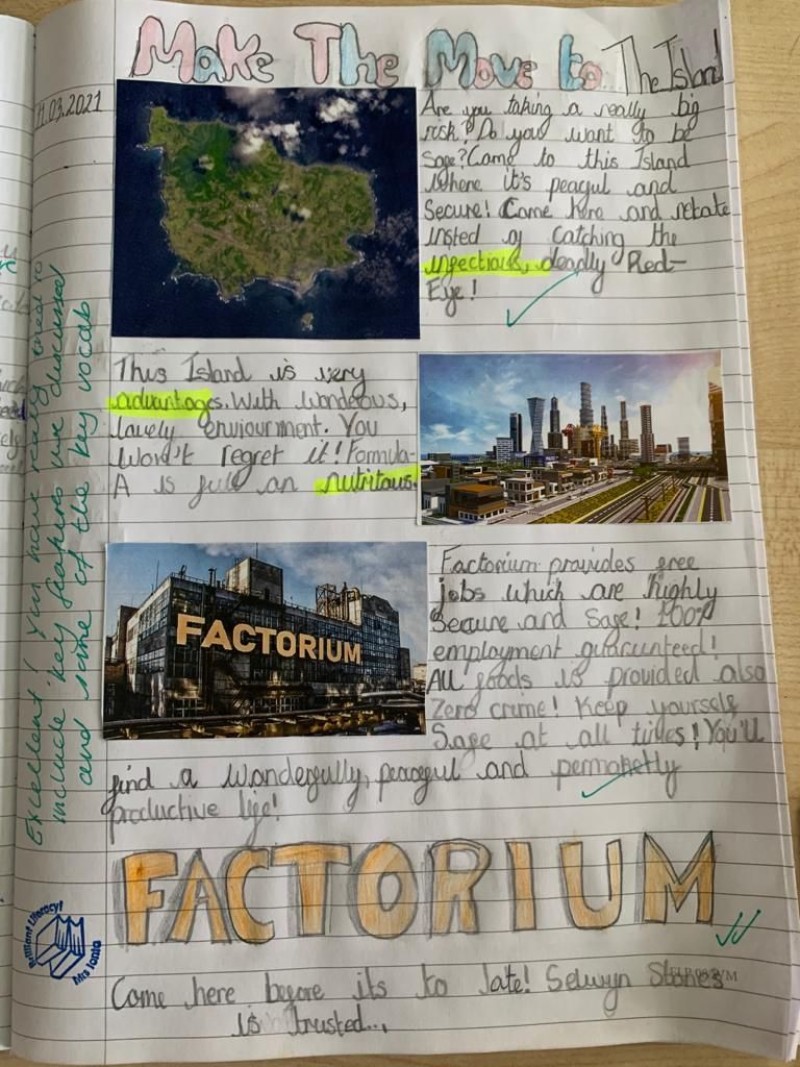 Make The Move to The Island
11.03.2021
Are you taking a really big
risk? Do you want to be
Safe? Come to this Island
where it's peaful and
Secure! Come here and rebate
insted of catching the
infectious, deadly Red-
Eye!
This Island is very
advantages. With wonderous,
lavely enviourment. You
Won't regret it! Formula-
A is full an nutritous.
FACTORIUM
Factorium provides free
jobs which are highly
Secure and Safe! 100%
employment guarunteed!
All goods is provided also
Zero crime! Keep yourself
Safe at all times! You'll
find a wonderfully, peaceful and permanetly
productive life!
FACTORIUM
Come here before its to late! Selwyn Stones
is trusted...
Excellent! You have really tried to
include key features we discussed
and some of the key vocab
Brilliant Literacy!
Mrs Ionta